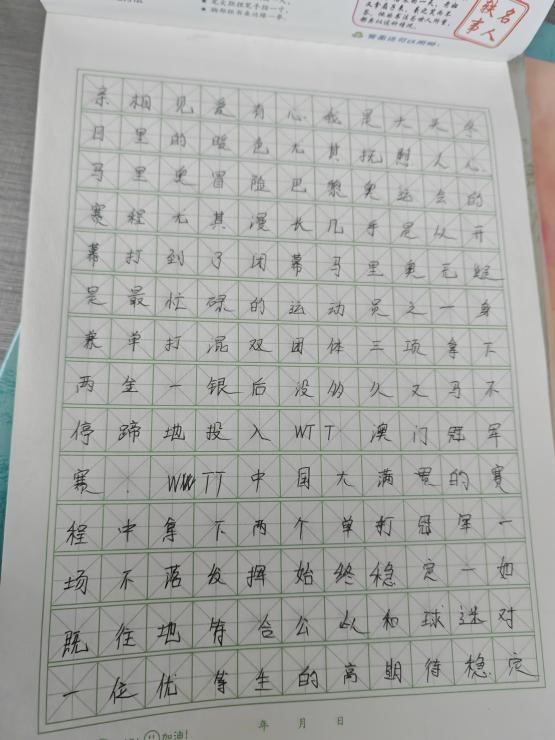 名人
轶事
亲相见爱有心我是大头冬
日里的暖色尤其抚慰人心
马里奥冒险巴黎奥运会的
赛程尤其漫长几乎是从开
幕打到了闭幕马里奥无疑
是最忙碌的运动员之一身
兼单打混双团体三项拿下
两金一银后没多久又马不
停蹄地投入WTT澳门冠军
赛.WWTT中国大满贯的赛
程中拿下两个单打冠军一
场不落发挥始终稳定一如
既往地符合公认和球迷对
一位优等生的高期待稳定
加油!
年 月 日